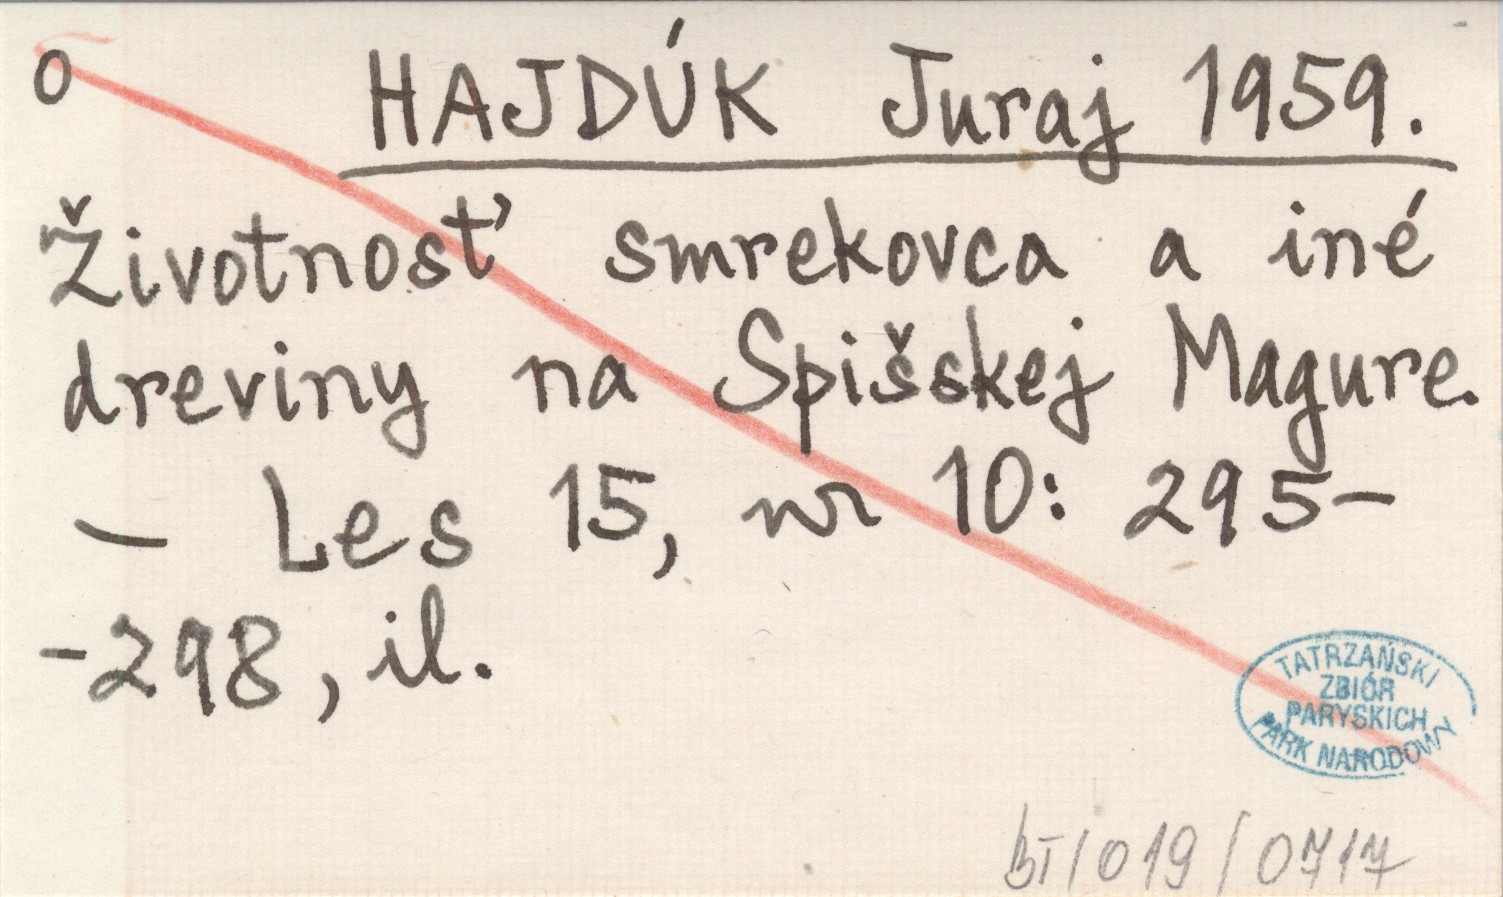 o HAJDÚK Juraj 1959.
Životnosť smrekovca a iné
dreviny na Spišskej Magure.
— Les 15, nr 10: 295-
-298, il.
TATRZAŃSKI
ZBIÓR
PARYSKICH
PARK NARODOWY
BT/019/0717